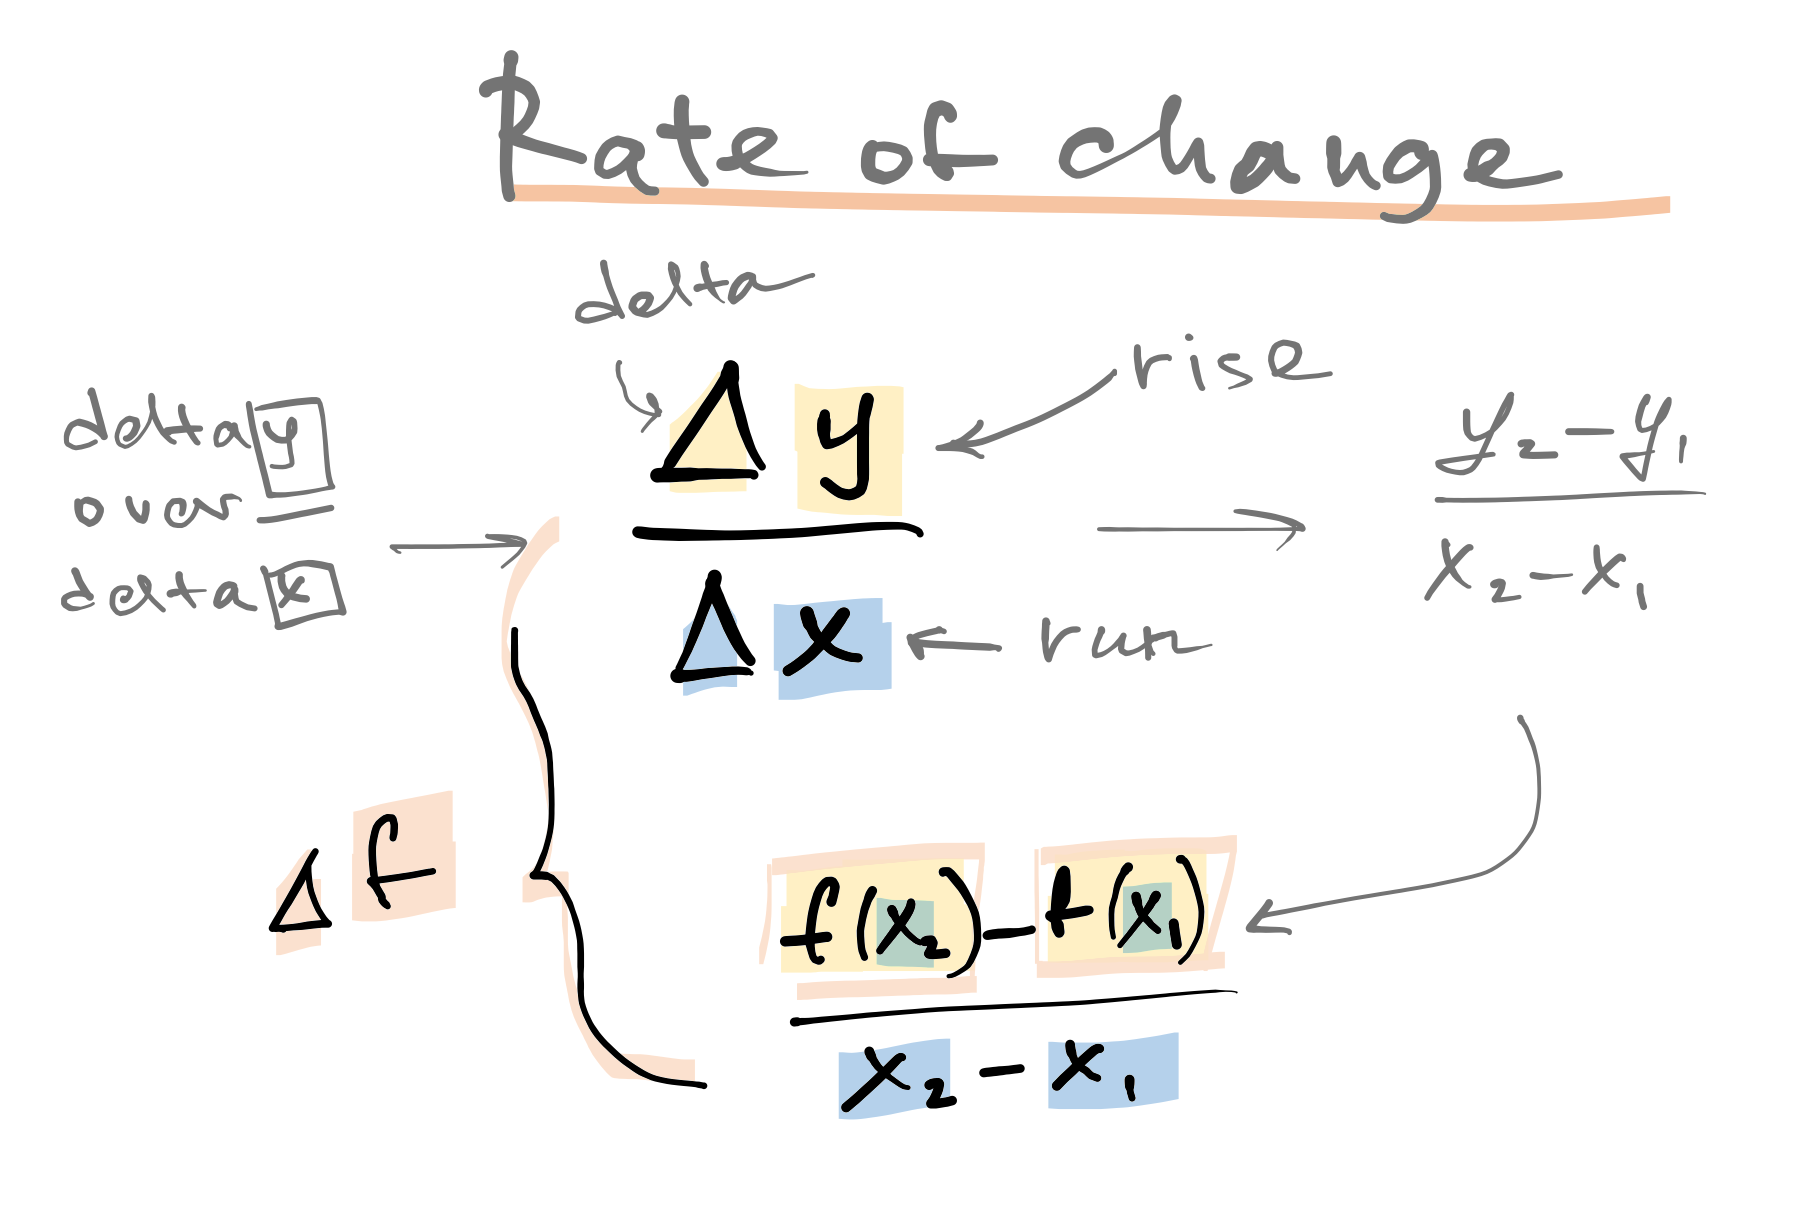 Rate of change
delta
rise
delta y
over
delta x
Δy
Δx
run
y₂-y₁
x₂-x₁
Δf
f(x₂)-f(x₁)
x₂-x₁